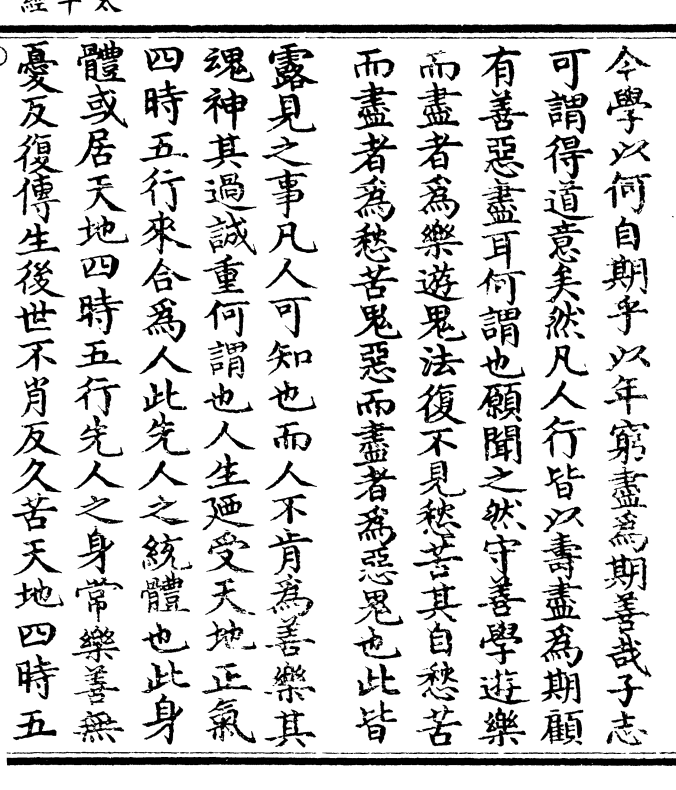 太平經
今學以何自期乎以年窮盡為期善哉子志
可謂得道意矣然凡人行皆以壽盡為期顧
有善惡盡耳何謂也願聞之然守善學遊樂
而盡者為樂遊鬼法復不見愁苦其自愁苦
而盡者為愁苦鬼惡而盡者為惡鬼也此皆
露見之事凡人可知也而人不肯為善樂其
魂神其過誠重何謂也人生廼受天地正氣
四時五行來合為人此先人之統體也此身
體或居天地四時五行先人之身常樂善無
憂反復傳生後世不肖反久苦天地四時五